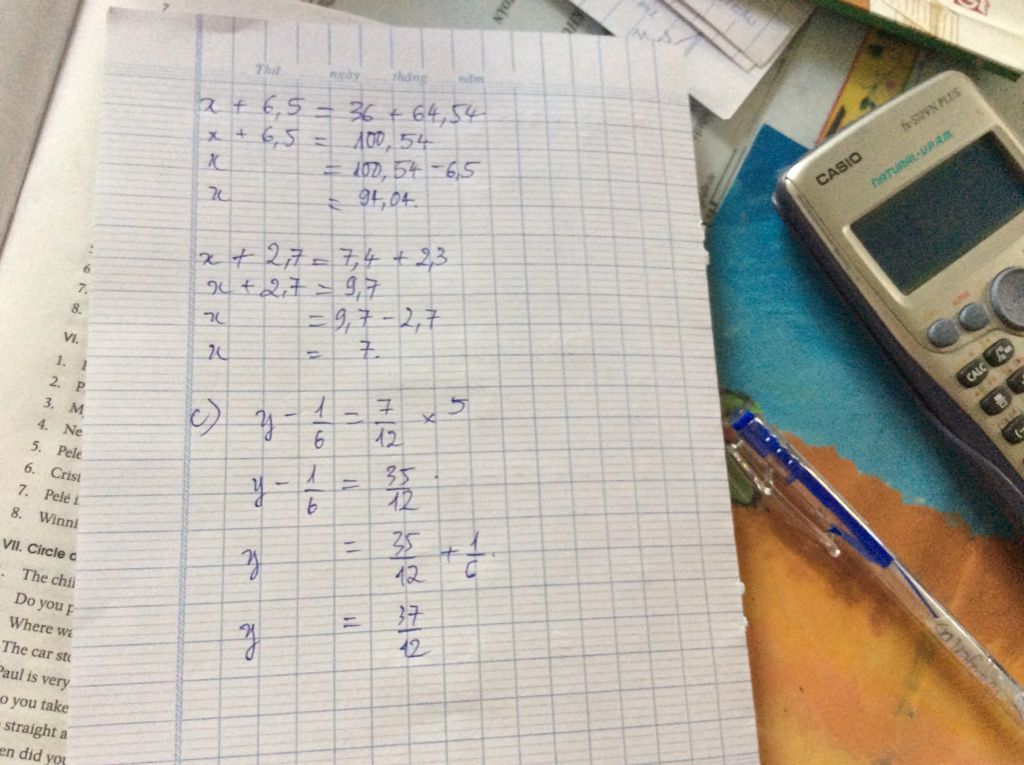 Thứ ngày tháng năm
x + 6,5 = 36 + 64,54
x + 6,5 = 100,54
x = 100,54 - 6,5
x = 94,04.
x + 2,7 = 7,4 + 2,3
x + 2,7 = 9,7
x = 9,7 - 2,7
x = 7.
c) y - 1/6 = 7/12 × 5
y - 1/6 = 35/12.
y = 35/12 + 1/6.
y = 37/12
6.
7.
8.
VI.
1.
2. P
3. M
4. Ne
5. Pele
6. Crist
7. Pelé i
8. Winni
VII. Circle
The chil
Do you p
Where wa
The car sto
Paul is very
o you take
straight a
en did you
CASIO
fx-570VN PLUS
NATURAL-V.P.A.M.
CALC